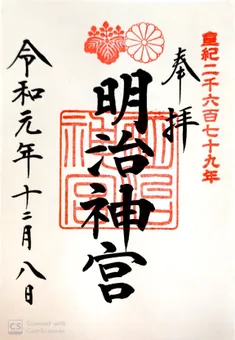 皇紀二千六百七十九年
奉拝
明治神宮
令和元年十二月八日
CS
Scanned with
CamScanner